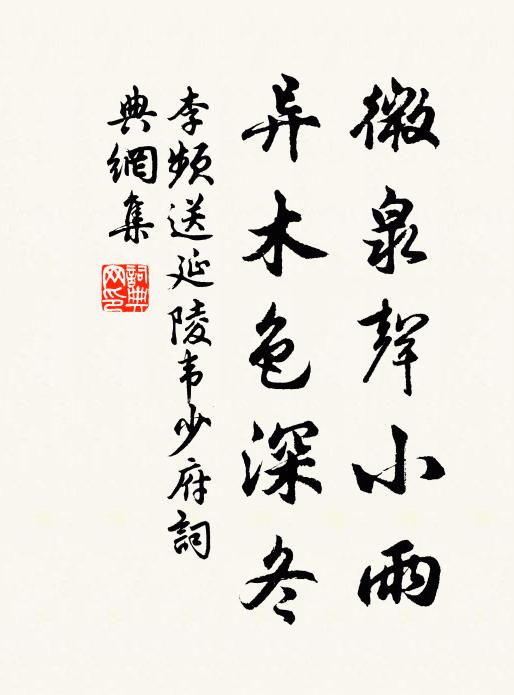 微泉聲小雨
异木色深冬
李頻送延陵韦少府詞
典網集
詞典网印